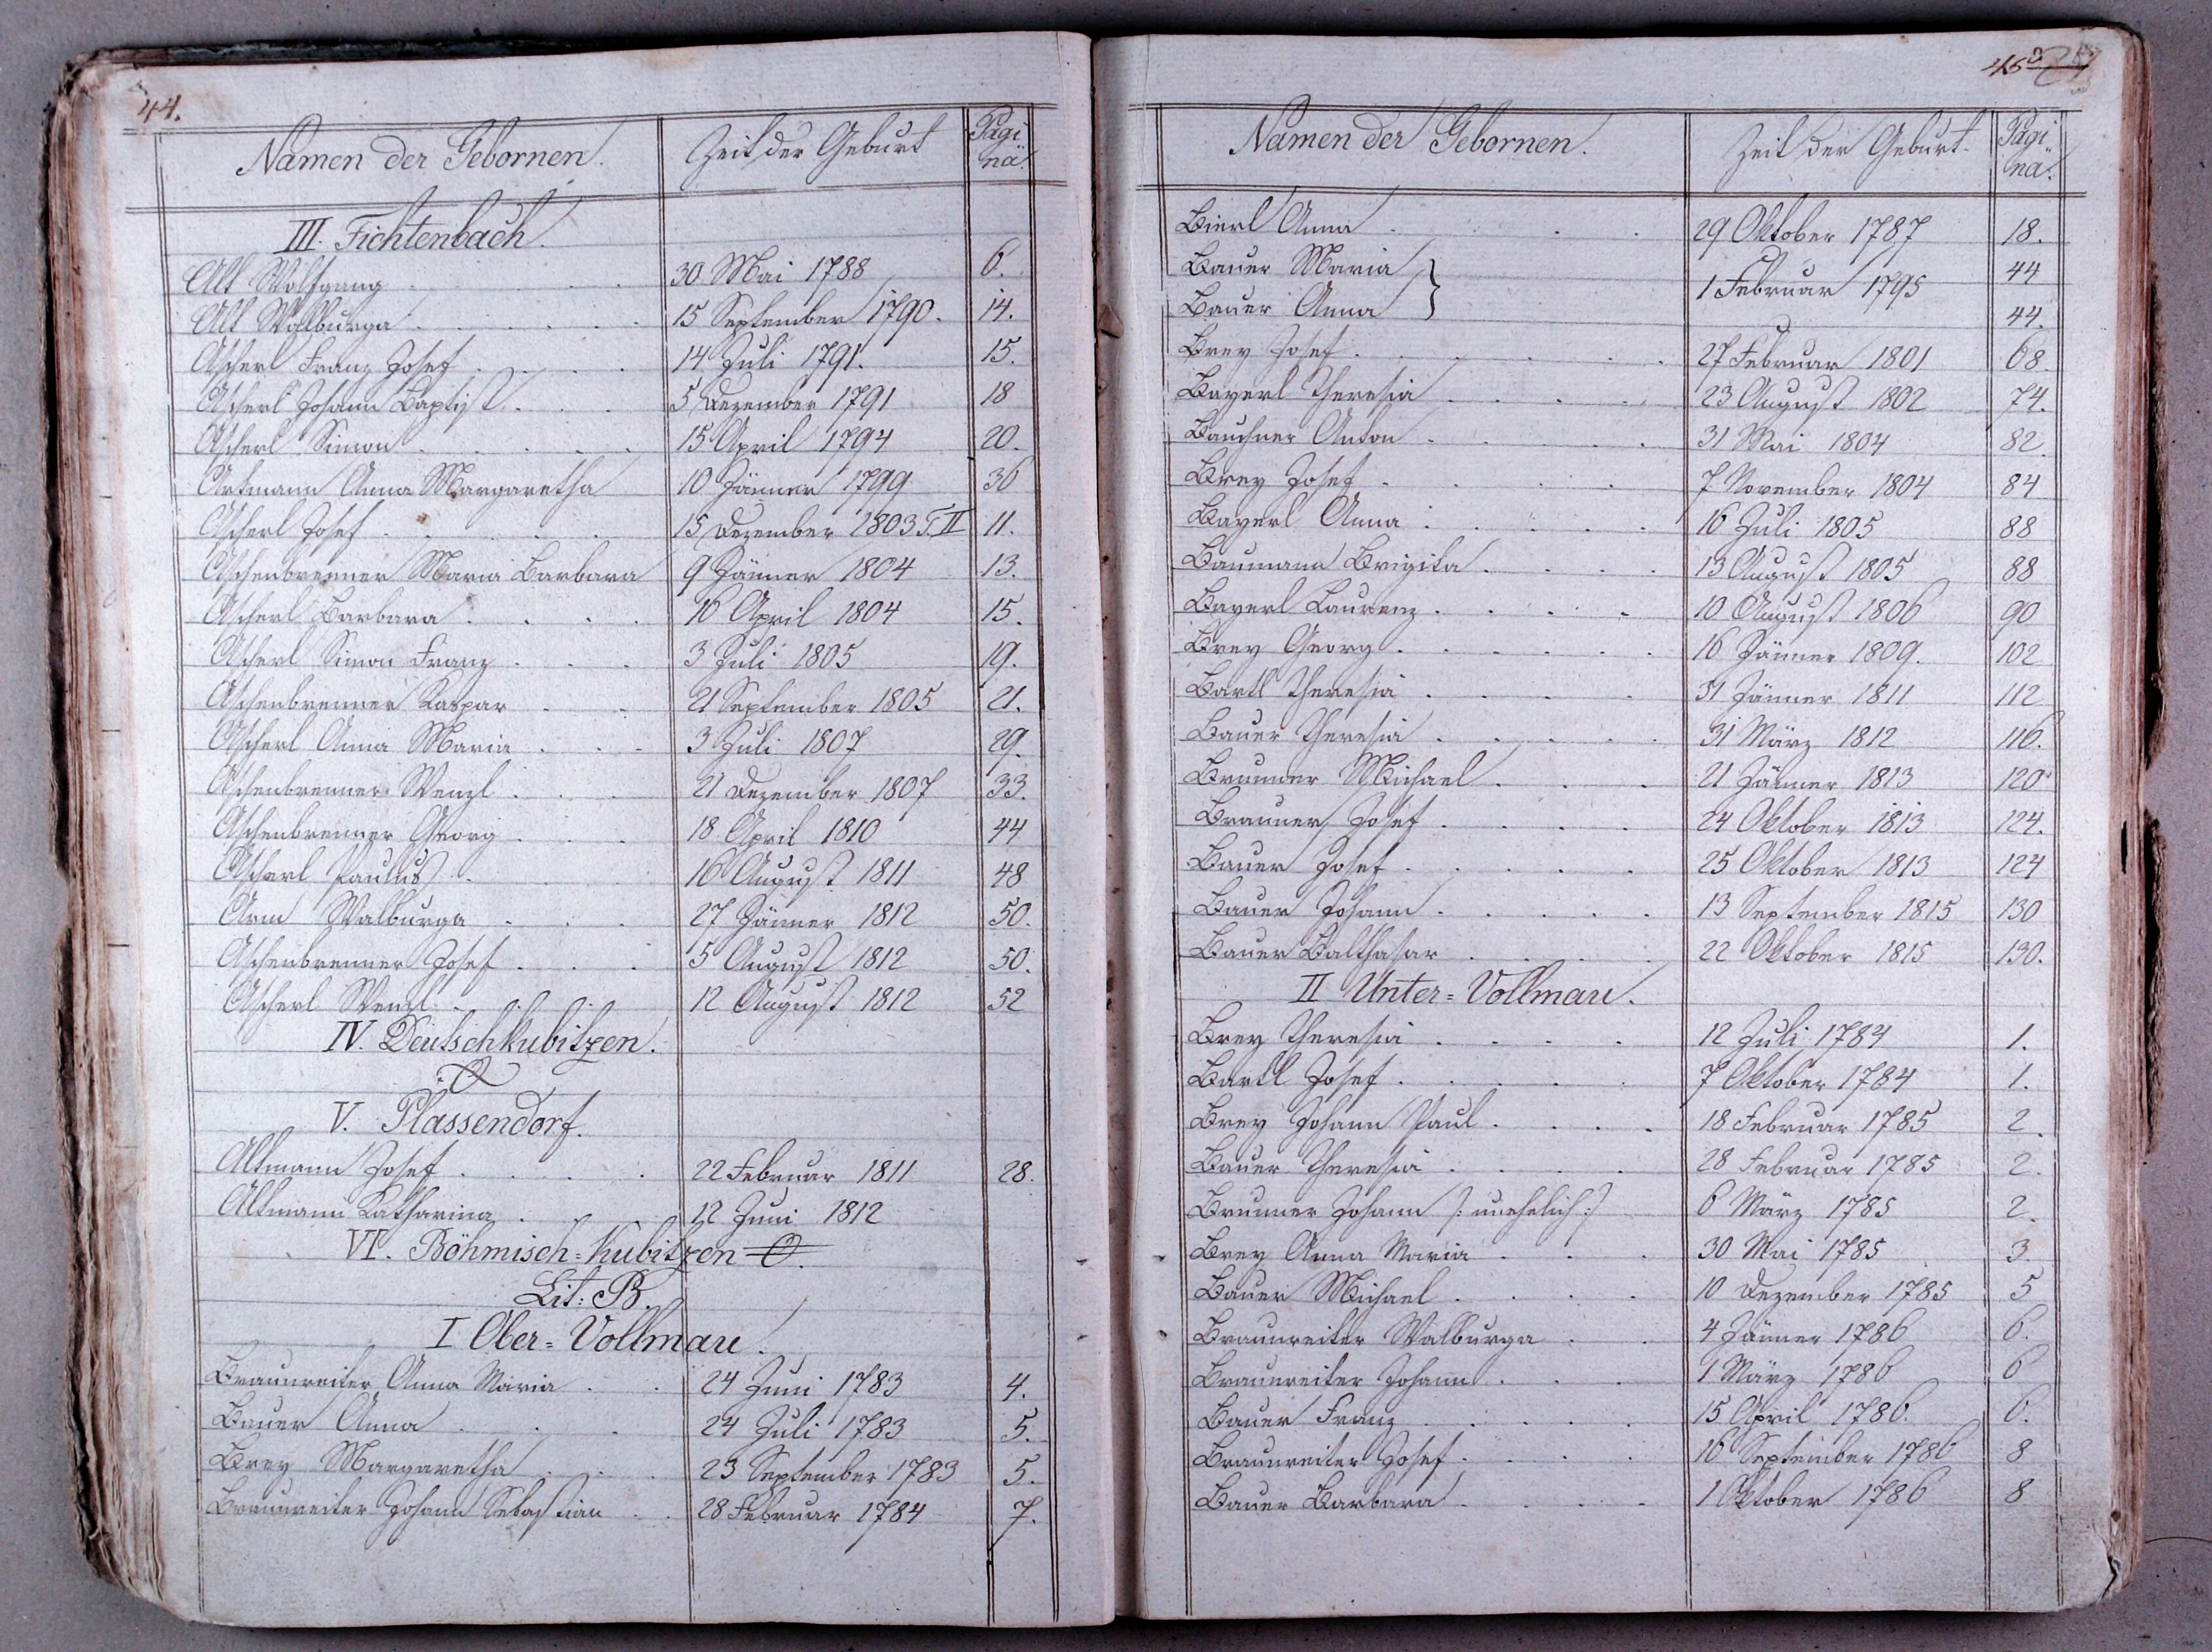 44.
Namen der Gebornen. Zeit der Geburt Pagi
na.
III. Fichtenbach.
Alt Wolfgang . . . 30 Mai 1788 6.
Alt Walburga . . . . . 15 September 1790. 14.
Ascherl Franz Josef . . . . 14 Juli 1791. 15.
Ascherl Johann Baptist . . . 5 Dezember 1791 18
Ascherl Simon . . . . . 15 April 1794 20.
Artmann Anna Margaretha 10 Jänner 1799 36
Ascherl Josef . . . . . 15 Dezember 1803 T. II 11.
Aschenbrenner Maria Barbara 9 Jänner 1804 13.
Ascherl Barbara . . . . 16 April 1804 15.
Ascherl Simon Franz . . . 3 Juli 1805 19.
Aschenbrenner Kaspar . . 21 September 1805 21.
Ascherl Anna Maria . . . 3 Juli 1807 29.
Aschenbrenner Wenzl . . . 21 Dezember 1807 33.
Aschenbrenner Georg . . . 18 April 1810 44
Ascherl Paulus . . . 16 August 1811 48
Arm Walburga . . . 27 Jänner 1812 50.
Aschenbrenner Josef . . . 5 August 1812 50.
Ascherl Wenzl . . . . 12 August 1812 52
IV. Deutschkubitzen.
V. Plassendorf.
Altmann Josef . . . . 22 Februar 1811 28.
Altmann Katharina . . 12 Juni 1812
VI. Böhmisch=Kubitzen O.
Lit: B.
I Ober=Vollmau.
Braunreiter Anna Maria . . 24 Juni 1783 4.
Bauer Anna . . . 24 Juli 1783 5.
Brey Margaretha . . . 23 September 1783 5.
Braunreiter Johann Sebastian . . 28 Februar 1784 7.
45
Namen der Gebornen. Zeit der Geburt. Pagi
na.
Bierl Anna . . . 29 Oktober 1787 18.
Bauer Maria } 44
1 Februar 1795
Bauer Anna } 44.
Brey Josef . . . . . . 27 Februar 1801 68.
Bayerl Theresia . . . . 23 August 1802 74.
Bauchner Anton . . . . 31 Mai 1804 82.
Brey Josef . . . . 7 November 1804 84
Bayerl Anna . . . . . 16 Juli 1805 88
Baumann Brigita . . . . 13 August 1805 88
Bayerl Laurenz . . . . 10 August 1806 90
Brey Georg . . . . . . 16 Jänner 1809. 102
Bartl Theresia . . . . 31 Jänner 1811 112
Bauer Theresia . . . . . 31 März 1812 116.
Brunner Michael . . . 21 Jänner 1813 120
Brauner Josef . . . . 24 Oktober 1813 124.
Bauer Josef . . . . . 25 Oktober 1813 124
Bauer Johann . . . . . 13 September 1815 130
Bauer Balthasar . . . . 22 Oktober 1815 130.
II Unter=Vollmau.
Brey Theresia . . . . 12 Juli 1784 1.
Bartl Josef . . . . . 7 Oktober 1784 1.
Brey Johann Paul . . . . 18 Februar 1785 2.
Bauer Theresia . . . . 28 Februar 1785 2.
Brunner Johann /: unehelich :/ 6 März 1785 2.
Brey Anna Maria . . . 30 Mai 1785 3.
Bauer Michael . . . . 10 Dezember 1785 5
Braunreiter Walburga . . 4 Jänner 1786 6.
Braunreiter Johann . . . 1 März 1786 6
Bauer Franz . . . . . 15 April 1786. 6.
Braunreiter Josef . . . . 16 September 1786 8
Bauer Barbara . . . . 1 Oktober 1786 8